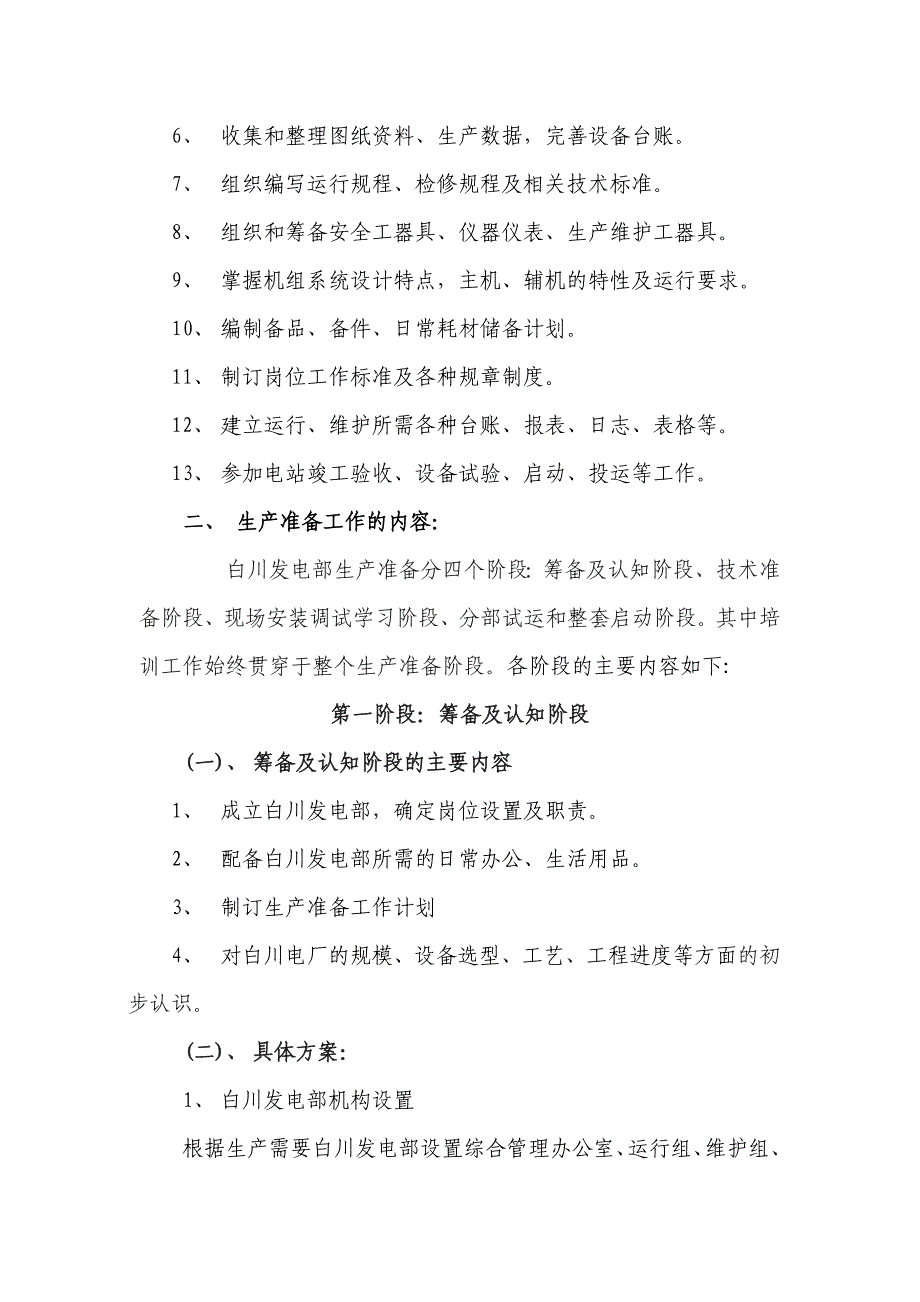 6、 收集和整理图纸资料、生产数据，完善设备台账。
7、 组织编写运行规程、检修规程及相关技术标准。
8、 组织和筹备安全工器具、仪器仪表、生产维护工器具。
9、 掌握机组系统设计特点，主机、辅机的特性及运行要求。
10、 编制备品、备件、日常耗材储备计划。
11、 制订岗位工作标准及各种规章制度。
12、 建立运行、维护所需各种台账、报表、日志、表格等。
13、 参加电站竣工验收、设备试验、启动、投运等工作。
二、 生产准备工作的内容：
白川发电部生产准备分四个阶段：筹备及认知阶段、技术准
备阶段、现场安装调试学习阶段、分部试运和整套启动阶段。其中培
训工作始终贯穿于整个生产准备阶段。各阶段的主要内容如下：
第一阶段：筹备及认知阶段
(一)、 筹备及认知阶段的主要内容
1、 成立白川发电部，确定岗位设置及职责。
2、 配备白川发电部所需的日常办公、生活用品。
3、 制订生产准备工作计划
4、 对白川电厂的规模、设备选型、工艺、工程进度等方面的初
步认识。
(二)、 具体方案：
1、 白川发电部机构设置
根据生产需要白川发电部设置综合管理办公室、运行组、维护组、